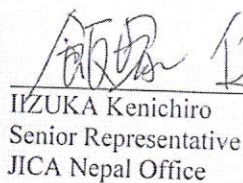 飯塚
IIZUKA Kenichiro
Senior Representative
JICA Nepal Office